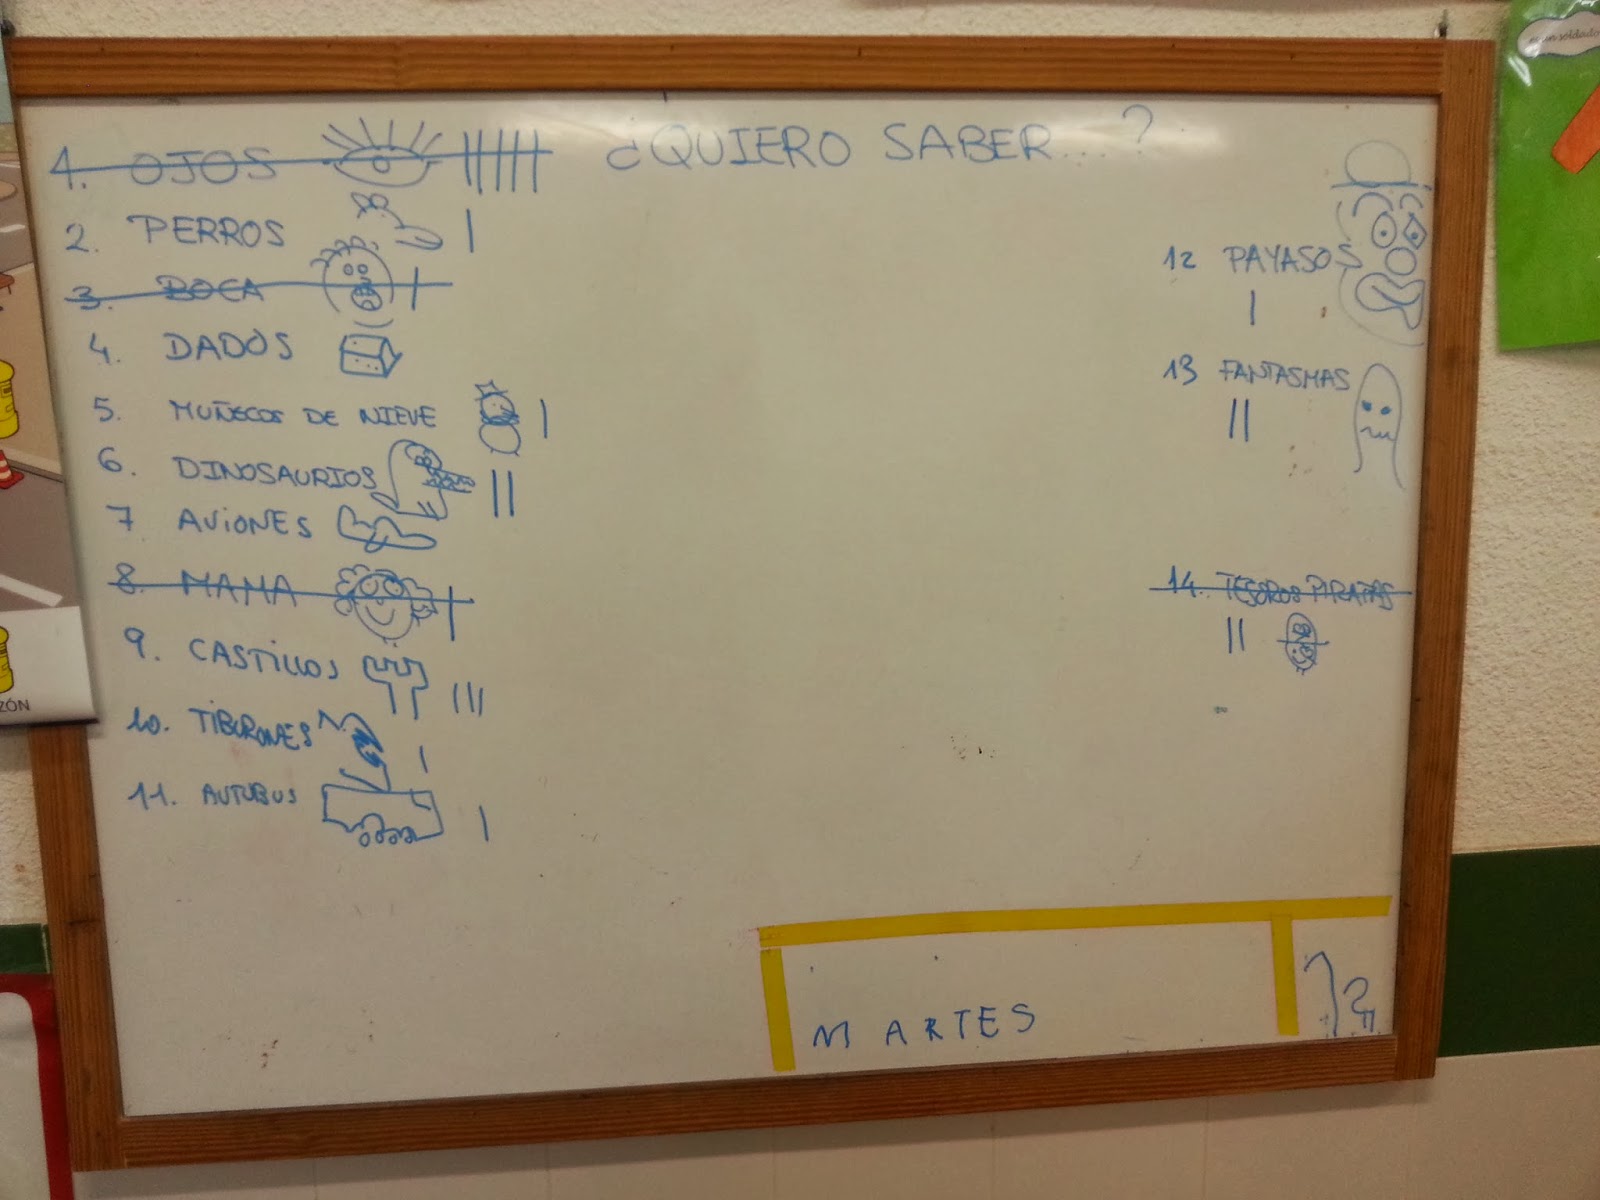 ¿QUIERO SABER....?
1. OJOS
2. PERROS
3. BOCA
4. DADOS
5. MUÑECOS DE NIEVE
6. DINOSAURIOS
7 AVIONES
8. MAMA
9. CASTILLOS
10. TIBURONES
11. AUTUBUS
12 PAYASOS
13 FANTASMAS
14. TESOROS PIRATAS
MARTES
ZÓN
soldado